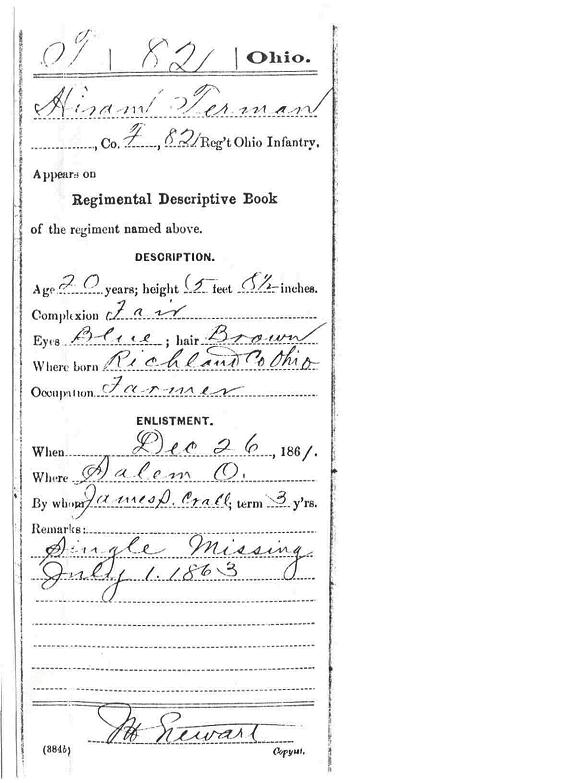 T | 82 | Ohio.
Hiram Terman
, Co. F, 82 Reg't Ohio Infantry.
Appears on
Regimental Descriptive Book
of the regiment named above.
DESCRIPTION.
Age 20 years; height 5 feet 8½ inches.
Complexion Fair
Eyes Blue; hair Brown
Where born Richland Co Ohio
Occupation Farmer
ENLISTMENT.
When Dec 26, 1861.
Where Salem O.
By whom James S. Crall; term 3 y'rs.
Remarks:
Single Missing
July 1. 1863
Stewart
(384b) Copyist.